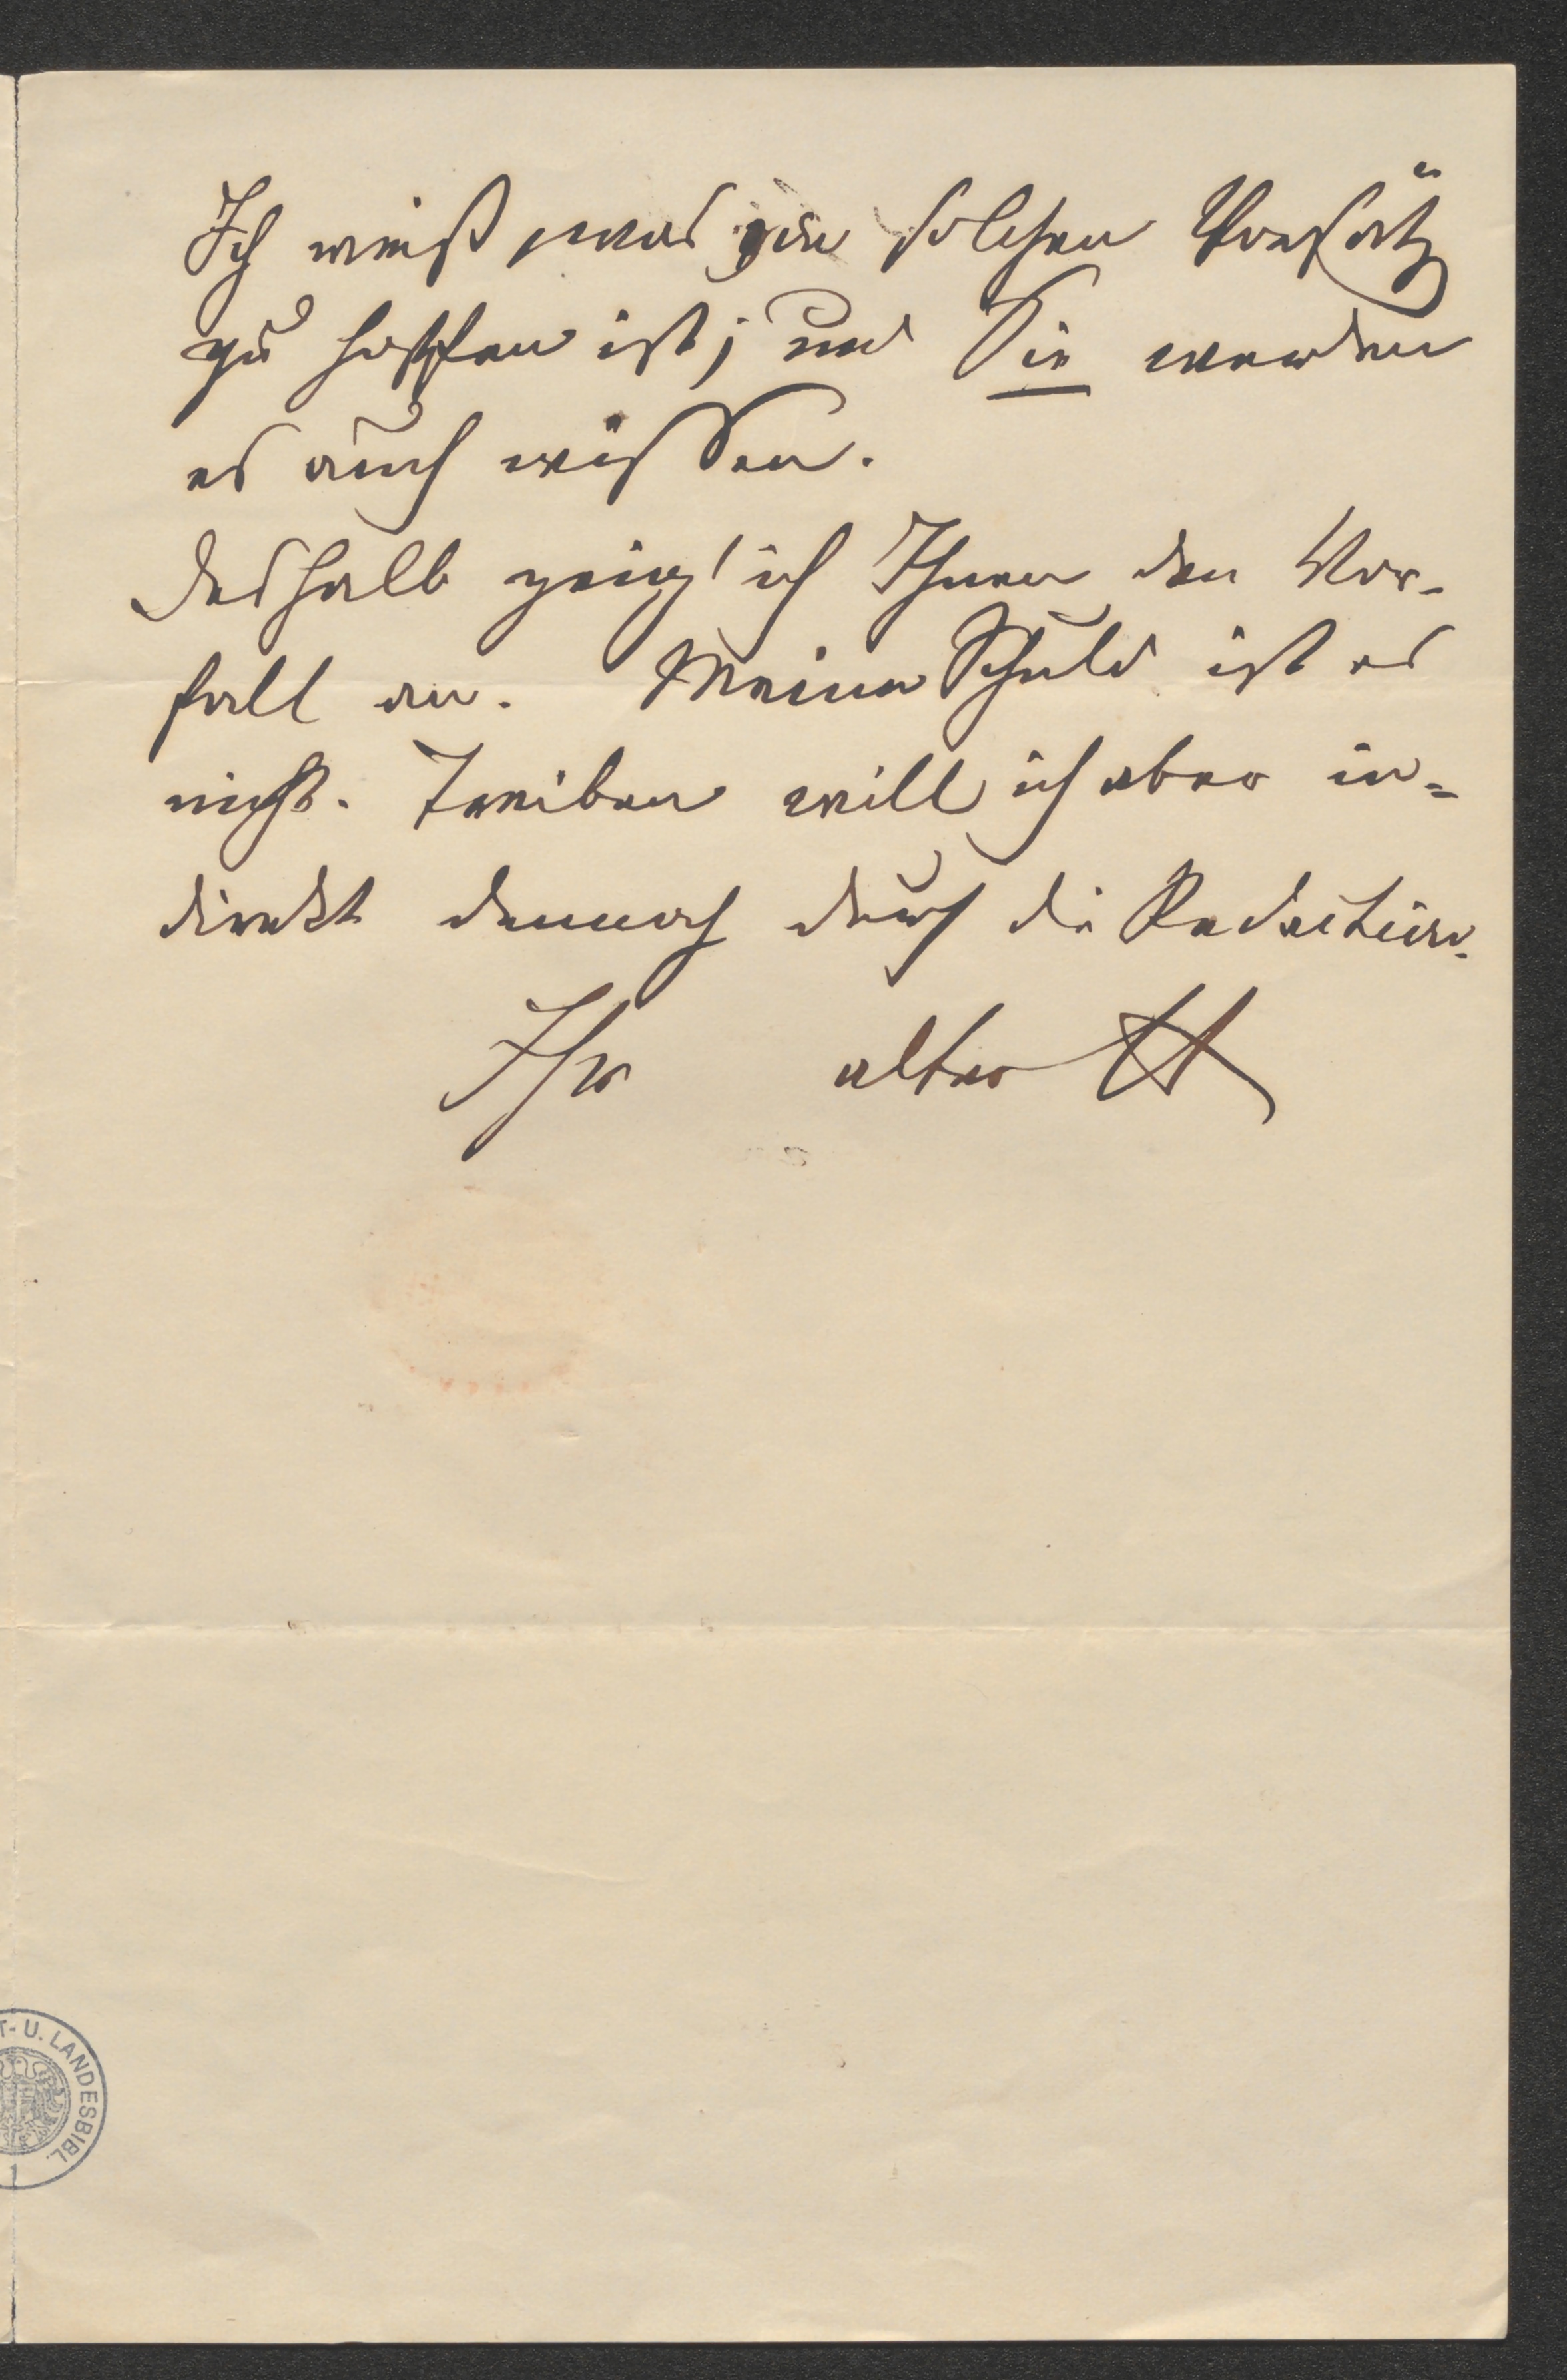 Ich weiß was von solchen Vorsätz
zu hoffen ist; und Sie werden
es auch wissen.
Deshalb zeig' ich Ihnen den Vor-
fall an. Meine Schuld ist es
nicht. Treiben will ich aber in=
direkt dennoch durch die Redaction.
Ihr alter H
T- U. LANDESBIBL.